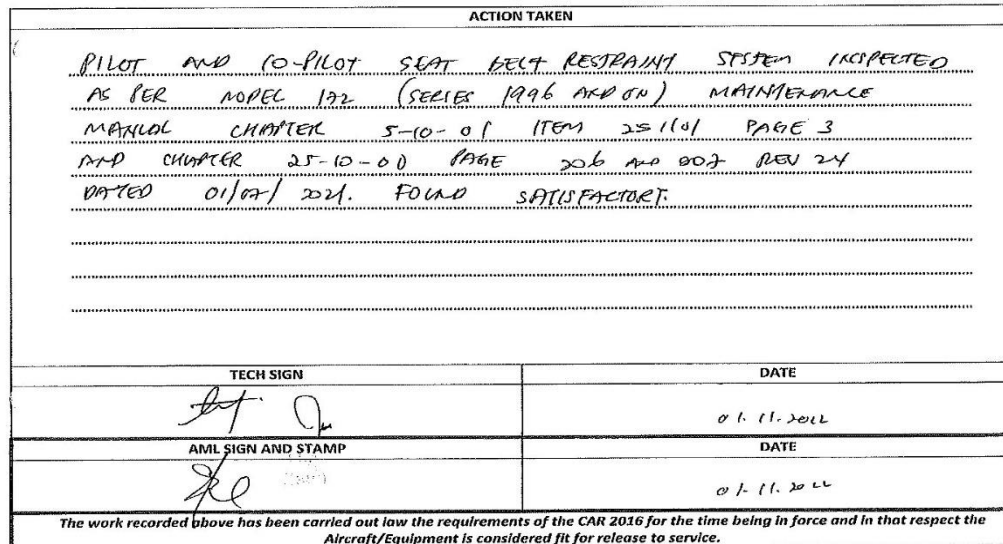 ACTION TAKEN
PILOT AND CO-PILOT SEAT BELT RESTRAINT SYSTEM INSPECTED
AS PER MODEL 172 (SERIES 1996 AND ON) MAINTENANCE
MANUAL CHAPTER 5-10-01 ITEM 251101 PAGE 3
AND CHAPTER 25-10-00 PAGE 206 AND 207 REV 24
DATED 01/07/2021. FOUND SATISFACTORY.
TECH SIGN DATE
01.11.2022
AML SIGN AND STAMP DATE
01.11.2022
The work recorded above has been carried out law the requirements of the CAR 2016 for the time being in force and in that respect the
Aircraft/Equipment is considered fit for release to service.